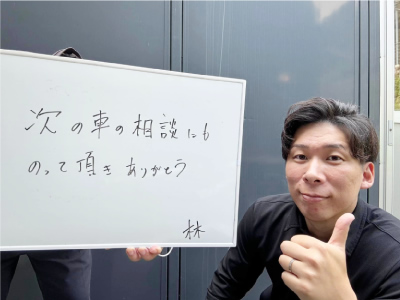 次の車の相談にも
のって頂きありがとう
林